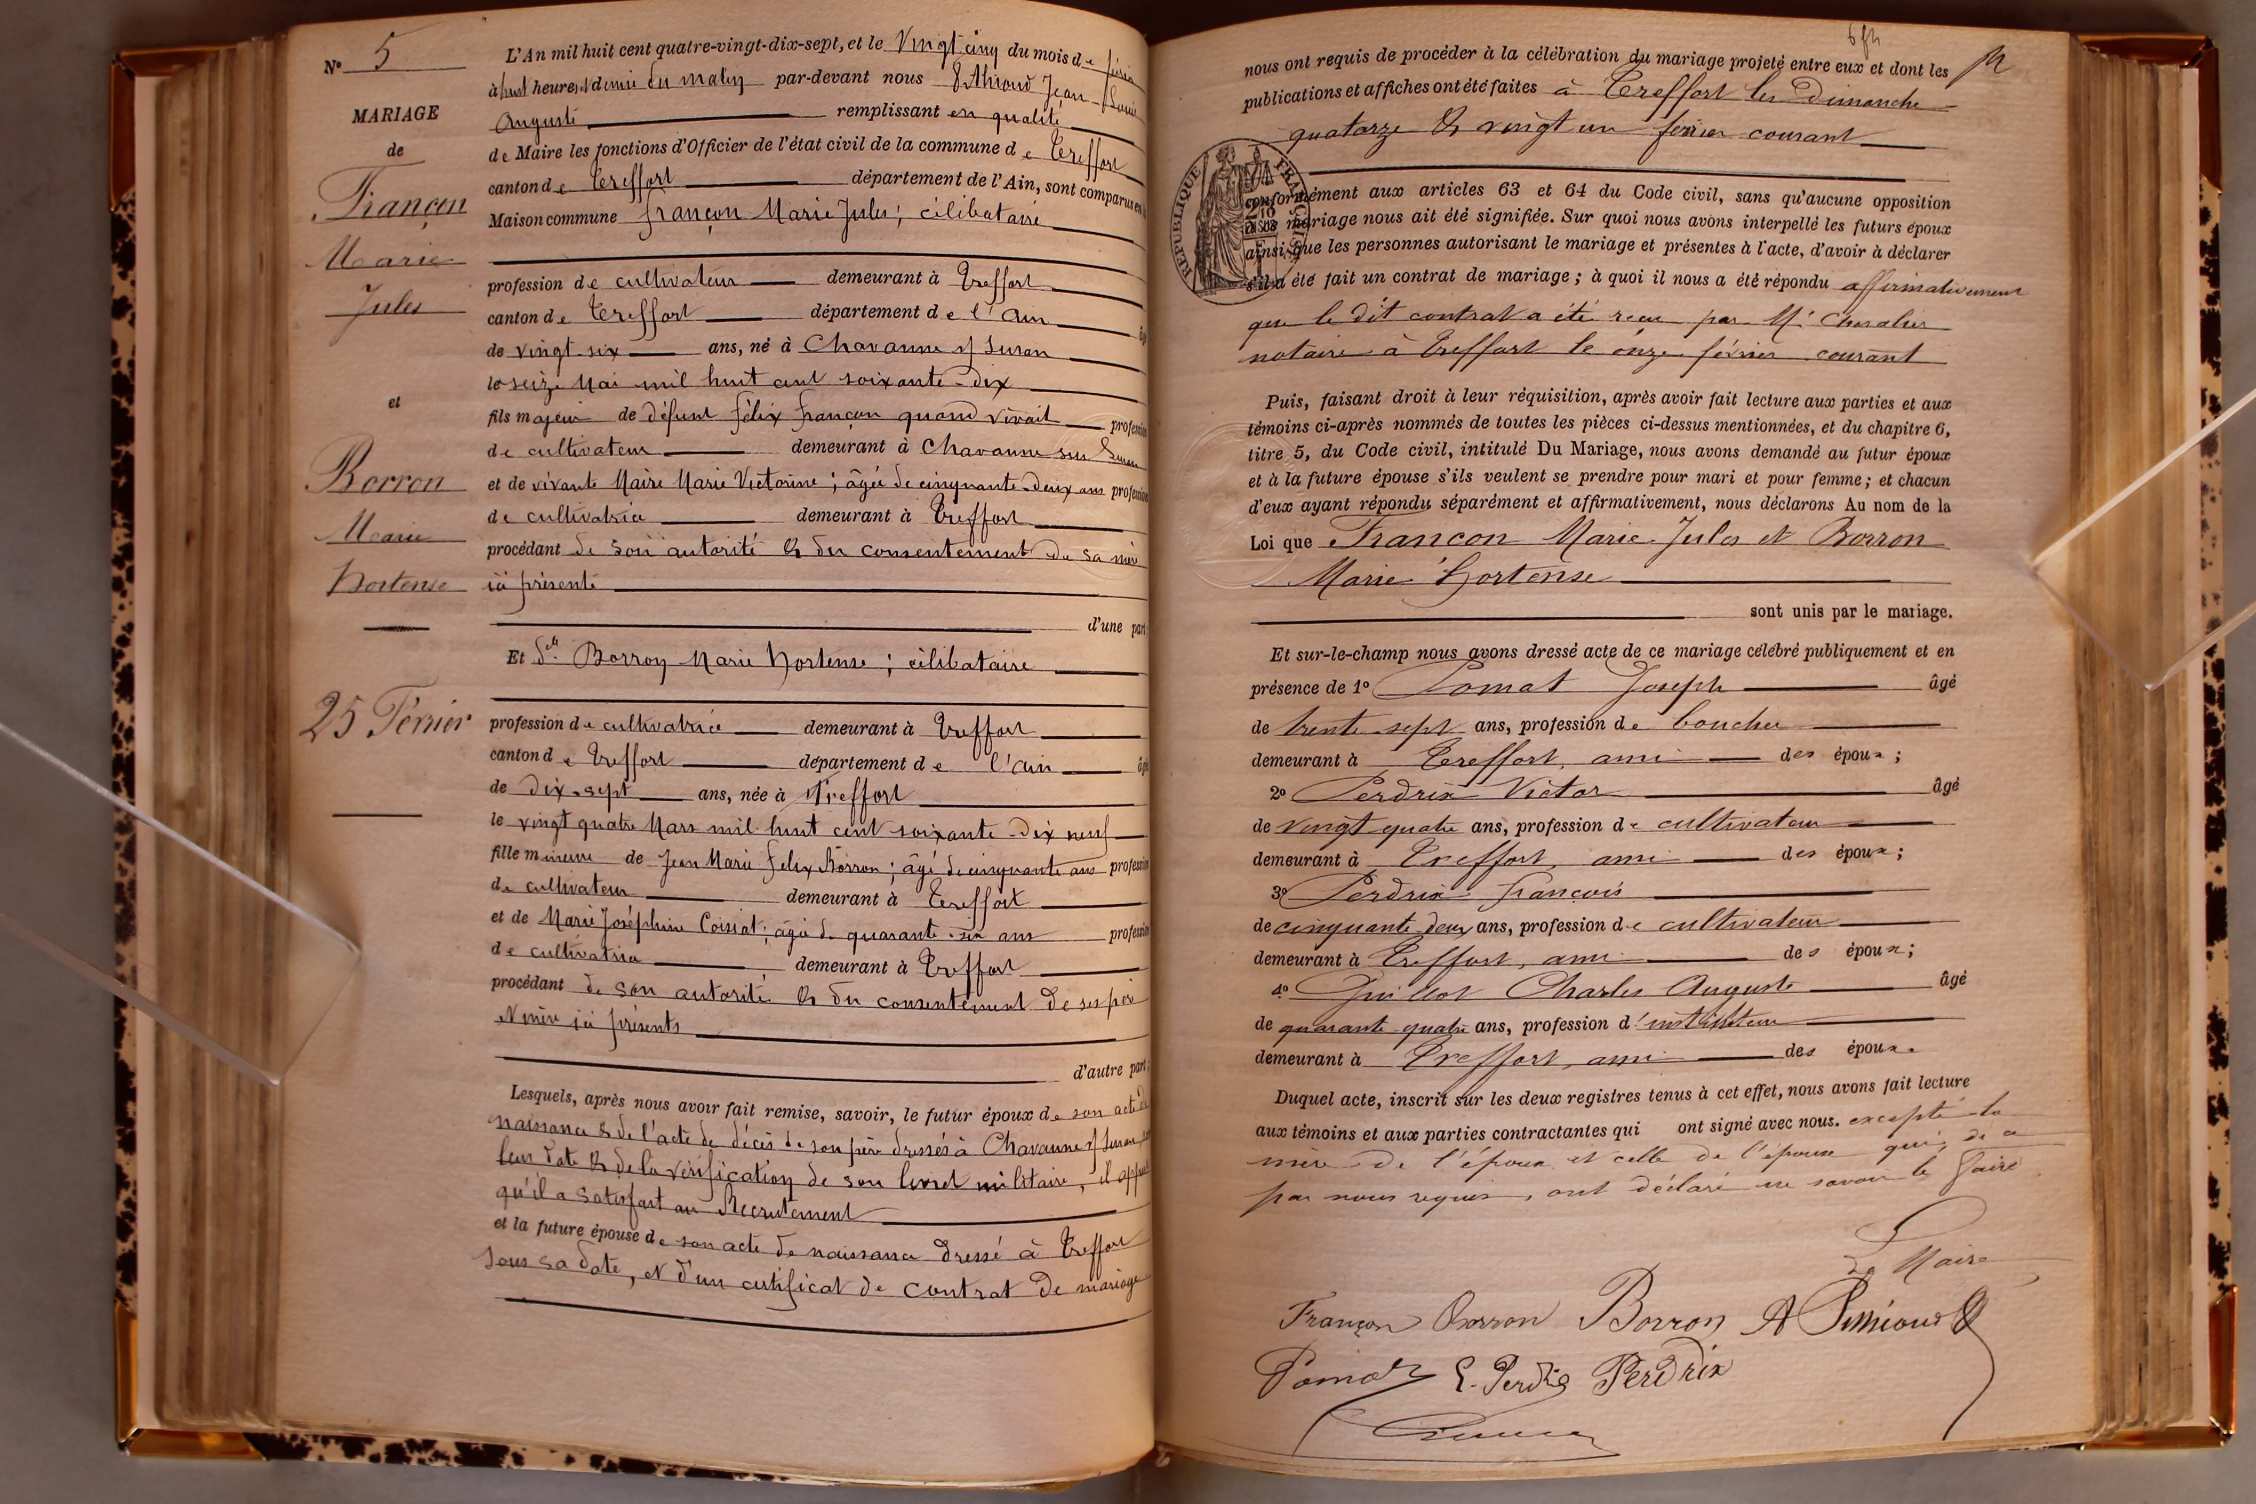 Nº 5
MARIAGE
de
Françon
Marie
Jules
et
Borron
Marie
Hortense
25 Février
L'An mil huit cent quatre-vingt-dix-sept, et le Vingt cinq du mois de
à huit heures et demie du matin par-devant nous Jean-Louis
Auguste remplissant en qualité
de Maire les fonctions d'Officier de l'état civil de la commune de Treffort
canton de Treffort département de l'Ain, sont comparus en la
Maison commune françon Marie Jules ; célibataire
profession de cultivateur demeurant à Treffort
canton de Treffort département de l'Ain âgé
de vingt-six ans, né à Chavanne s/ Suran
le seize Mai mil huit cent soixante-dix
fils majeur de défunt félix françon quand vivait profession
de cultivateur demeurant à Chavanne sur Suran
et de vivante Maire Marie Victorine ; âgée de cinquante-deux ans profession
de cultivatrice demeurant à Treffort
procédant de son autorité & du consentement de sa mère
ici présente
d'une part
Et Dlle Borron Marie Hortense ; célibataire
profession de cultivatrice demeurant à Treffort
canton de Treffort département de l'Ain âgé
de dix-sept ans, née à Treffort
le vingt quatre Mars mil huit cent soixante-dix neuf
fille mineure de Jean Marie felix Borron ; âgé de cinquante ans profession
de cultivateur demeurant à Treffort
et de Marie Joséphine Coisiat ; âgée de quarante-six ans profession
de cultivatrice demeurant à Treffort
procédant de son autorité & du consentement de ses père
et mère ici présents
d'autre part ;
Lesquels, après nous avoir fait remise, savoir, le futur époux de son acte de
naissance & de l'acte de décès de son père dressés à Chavanne s/ Suran sous
leur date & de la vérification de son livret militaire, il appert
qu'il a satisfait au Recrutement
et la future épouse de son acte de naissance dressé à Treffort
sous sa date, et d'un certificat de contrat de mariage
nous ont requis de procéder à la célébration du mariage projeté entre eux et dont les
publications et affiches ont été faites à Treffort les Dimanche
quatorze & vingt un février courant
RÉPUBLIQUE FRANÇAISE
conformément aux articles 63 et 64 du Code civil, sans qu'aucune opposition
au mariage nous ait été signifiée. Sur quoi nous avons interpellé les futurs époux
ainsi que les personnes autorisant le mariage et présentes à l'acte, d'avoir à déclarer
s'il a été fait un contrat de mariage ; à quoi il nous a été répondu affirmativement
que le dit contrat a été reçu par Me Chevalier
notaire à Treffort le onze février courant
Puis, faisant droit à leur réquisition, après avoir fait lecture aux parties et aux
témoins ci-après nommés de toutes les pièces ci-dessus mentionnées, et du chapitre 6,
titre 5, du Code civil, intitulé Du Mariage, nous avons demandé au futur époux
et à la future épouse s'ils veulent se prendre pour mari et pour femme ; et chacun
d'eux ayant répondu séparément et affirmativement, nous déclarons Au nom de la
Loi que Françon Marie Jules et Borron
Marie Hortense
sont unis par le mariage.
Et sur-le-champ nous avons dressé acte de ce mariage célébré publiquement et en
présence de 1º Pomat Joseph âgé
de trente sept ans, profession de boucher
demeurant à Treffort, ami des époux ;
2º Perdrix Victor âgé
de vingt quatre ans, profession de cultivateur
demeurant à Treffort, ami des époux ;
3º Perdrix françois
de cinquante deux ans, profession de cultivateur
demeurant à Treffort, ami des époux ;
4º Guillot Charles Auguste âgé
de quarante-quatre ans, profession d'instituteur
demeurant à Treffort, ami des époux.
Duquel acte, inscrit sur les deux registres tenus à cet effet, nous avons fait lecture
aux témoins et aux parties contractantes qui ont signé avec nous. excepté la
mère de l'époux et celle de l'épouse qui, de ce
par nous requis, ont déclaré ne savoir le faire
Le Maire
Françon Borron Borron A
Pomat Perdrix Perdrix